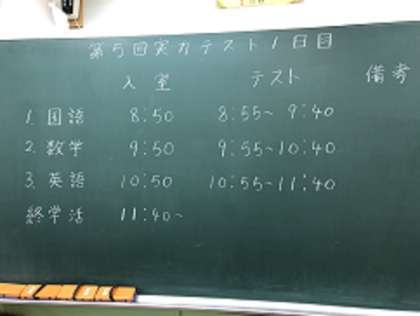 第5回実力テスト1日目
入室 テスト 備考
1. 国語 8:50 8:55~ 9:40
2. 数学 9:50 9:55~10:40
3. 英語 10:50 10:55~11:40
終学活 11:40~